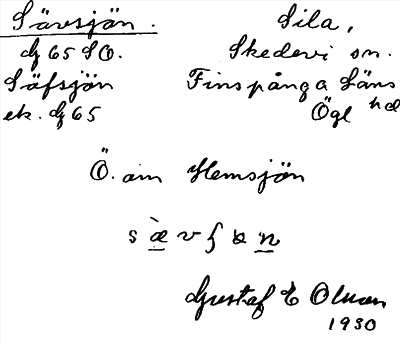 Sävsjön. Sila,
dj 65 SO. Skedevi sn.
Säfsjön Finspånga Läns hd
ek. dj 65 Ögl
Ö. om Hemsjön
Gustaf E Olman
1930